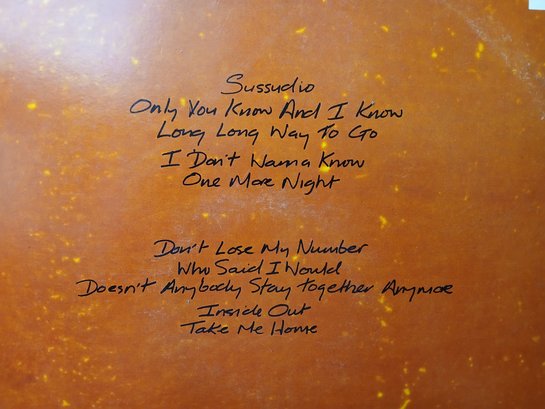 Sussudio
Only You Know And I Know
Long Long Way To Go
I Don't Wanna Know
One More Night
Don't Lose My Number
Who Said I Would
Doesn't Anybody Stay together Anymore
Inside Out
Take Me Home